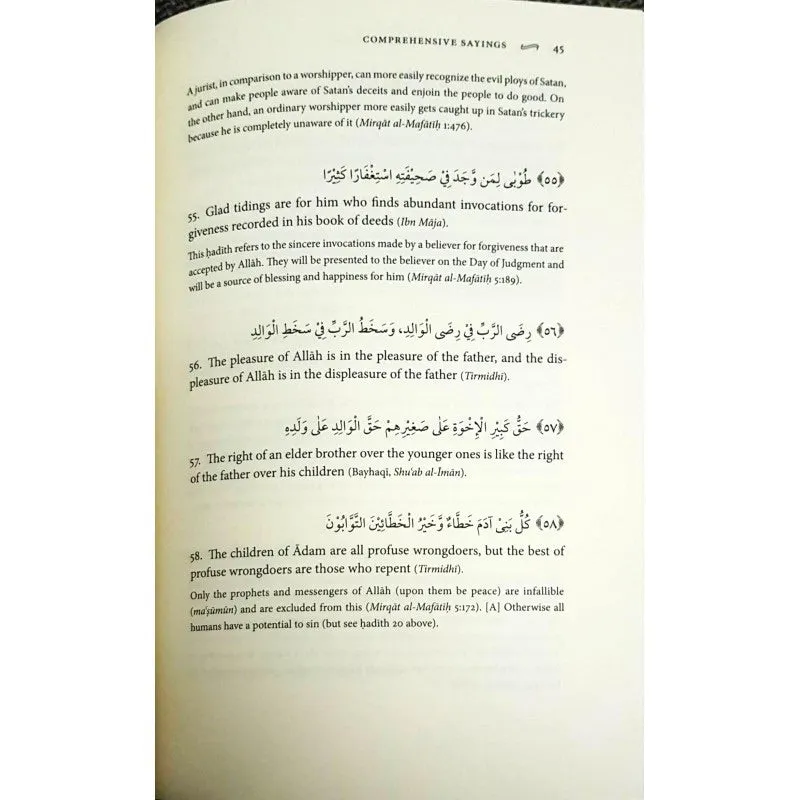 COMPREHENSIVE SAYINGS 45
A jurist, in comparison to a worshipper, can more easily recognize the evil ploys of Satan,
and can make people aware of Satan's deceits and enjoin the people to do good. On
the other hand, an ordinary worshipper more easily gets caught up in Satan's trickery
because he is completely unaware of it (Mirqāt al-Mafātīḥ 1:476).
﴿٥٥﴾ طُوْبٰى لِمَن وَّجَدَ فِيْ صَحِيْفَتِهِ اسْتِغْفَارًا كَثِيْرًا
55. Glad tidings are for him who finds abundant invocations for for-
giveness recorded in his book of deeds (Ibn Māja).
This ḥadīth refers to the sincere invocations made by a believer for forgiveness that are
accepted by Allāh. They will be presented to the believer on the Day of Judgment and
will be a source of blessing and happiness for him (Mirqāt al-Mafātīḥ 5:189).
﴿٥٦﴾ رِضَى الرَّبِّ فِيْ رِضَى الْوَالِدِ، وَسَخَطُ الرَّبِّ فِيْ سَخَطِ الْوَالِدِ
56. The pleasure of Allāh is in the pleasure of the father, and the dis-
pleasure of Allāh is in the displeasure of the father (Tirmidhī).
﴿٥٧﴾ حَقُّ كَبِيْرِ الْإِخْوَةِ عَلٰى صَغِيْرِهِمْ حَقُّ الْوَالِدِ عَلٰى وَلَدِهِ
57. The right of an elder brother over the younger ones is like the right
of the father over his children (Bayhaqī, Shu'ab al-Īmān).
﴿٥٨﴾ كُلُّ بَنِيْ آدَمَ خَطَّاءٌ وَّخَيْرُ الْخَطَّائِيْنَ التَّوَّابُوْنَ
58. The children of Ādam are all profuse wrongdoers, but the best of
profuse wrongdoers are those who repent (Tirmidhī).
Only the prophets and messengers of Allāh (upon them be peace) are infallible
(ma'ṣūmūn) and are excluded from this (Mirqāt al-Mafātīḥ 5:172). [A] Otherwise all
humans have a potential to sin (but see ḥadīth 20 above).